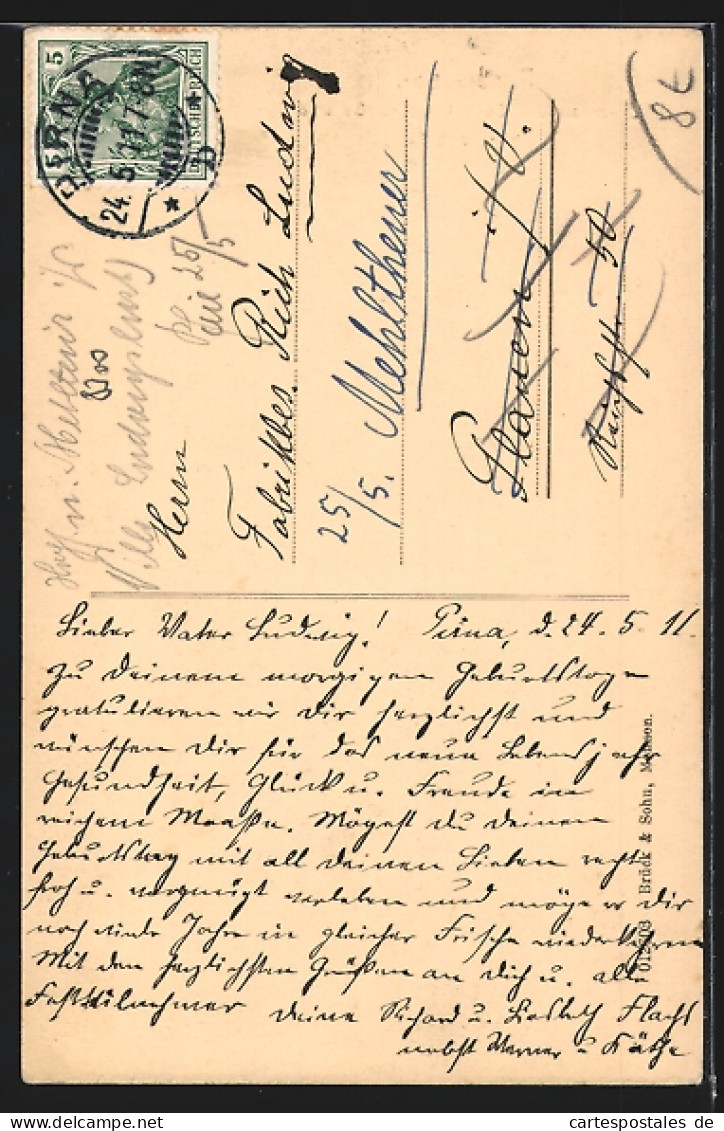 5
DEUTSCHES REICH
PIRNA
24.5.11.7-8N.
* b *
8€
Herrn
Fabrikbes. Rich. Ludwig
25/5. Mehltheuer
Plauen i/V.
50
25/5
Lieber Vater Ludwig! Pirna, d. 24. 5. 11.
Zu Deinem morgigen Geburtstage
gratulieren wir Dir herzlichst und
wünschen Dir für das neue Lebensjahr
Gesundheit, Glück u. Freude in
reichem Maaße. Mögest du Deinen
Geburtstag mit all Deinen Lieben recht
froh u. vergnügt verleben und möge er Dir
noch viele Jahre in gleicher Frische wiederkehren
Mit den herzlichsten Grüßen an Dich u. alle
Festteilnehmer Deine Richard u. Flachs
nebst Werner u. Käthe
Brück & Sohn, Meissen.
cartespostales de